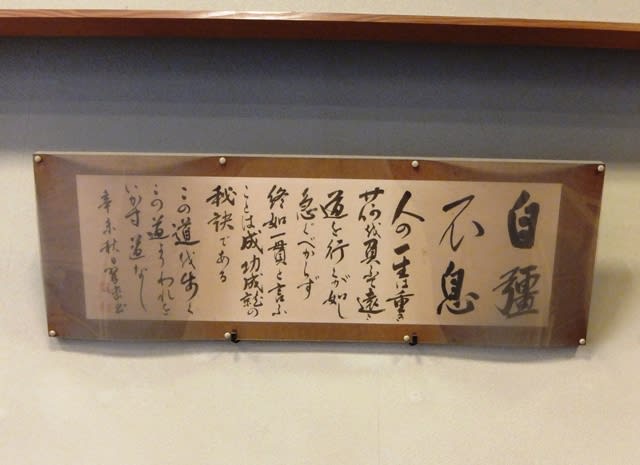 自疆
不息
人の一生は重き
荷を負ふて遠き
道を行くが如し
急ぐべからず
終始一貫と言ふ
ことは成功成就の
秘訣である
この道を歩く
この道よりわれを
いかす道なし
辛未秋日